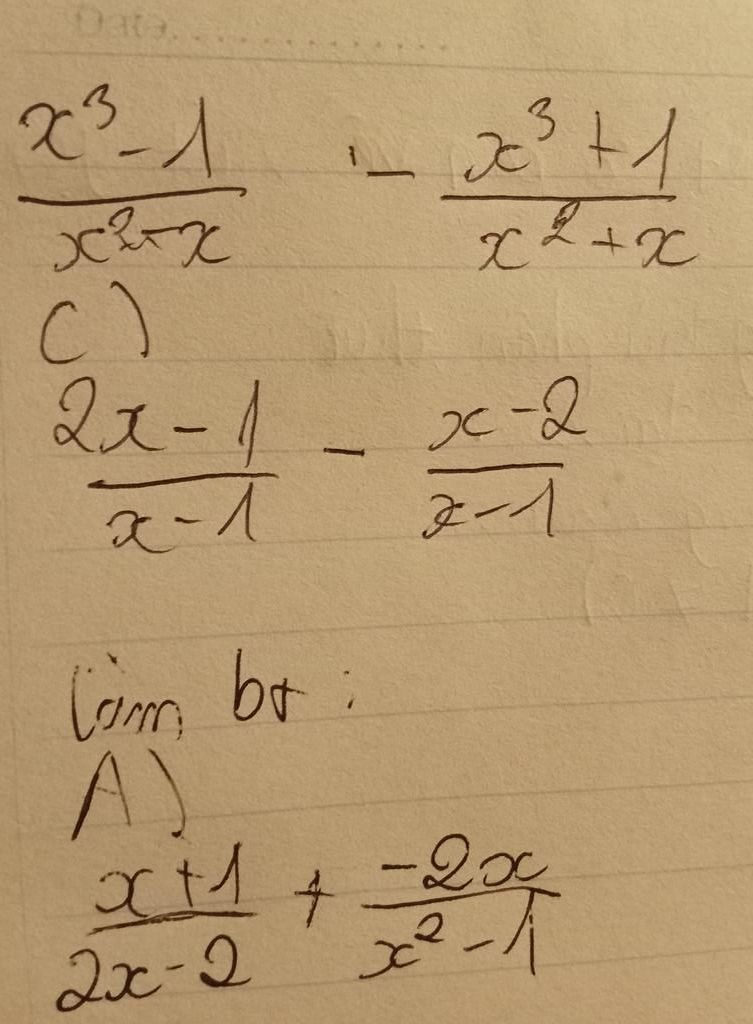 x³ - 1 / x² - x - x³ + 1 / x² + x
C)
2x - 1 / x - 1 - x - 2 / x - 1
Làm bt :
A)
x + 1 / 2x - 2 + -2x / x² - 1